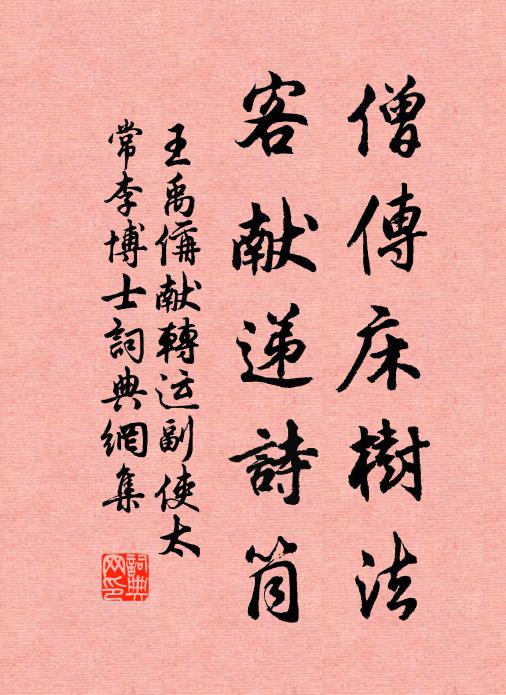 僧傳床樹法
客献遞詩筒
王禹偁献轉运副使太
常李博士詞典網集
詞典
网印